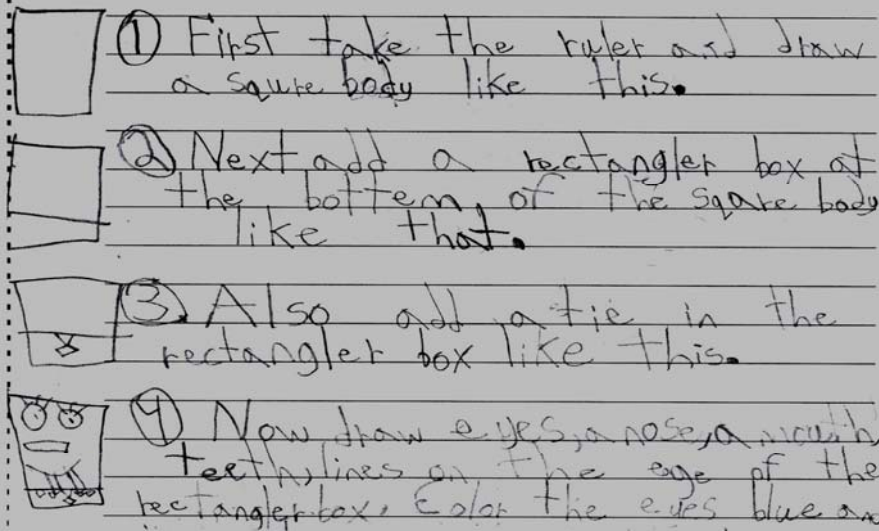 ① First take the ruler and draw
a squre body like this.
② Next add a rectangler box at
the bottem, of the sqare body
like that.
3. Also add a tie in the
rectangler box like this.
4 Now draw eyes, a nose, a mouth,
teeth, lines on the ege of the
rectangler box. Color the eyes blue an